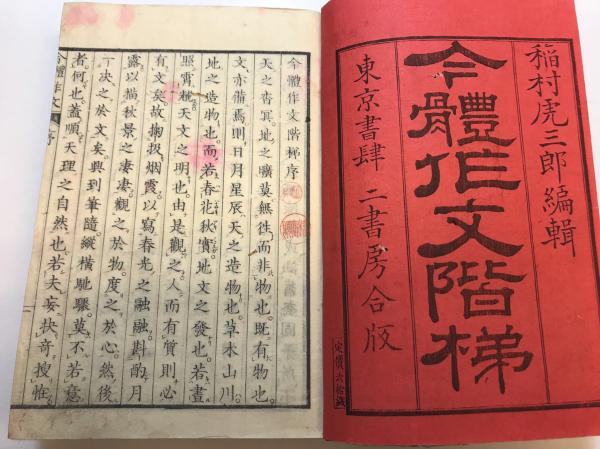 稲村虎三郎編輯
今體作文階梯
東京書肆 二書房合版
定價六拾錢
今體作文階梯序
天之杳冥。地之曠莫。無往而非物也。既有物也。
文亦備焉。則日月星辰。天之造物也。草木山川。
地之造物也。而若春花秋實。地文之發也。若晝
照宵耀。天文之明也。由是觀之。人而有質則必
有文矣。故掬扱烟霞。以寫春光之融融。斟酌月
露。以描秋景之凄凄。觀之於物。度之於心。然後
一决之於文矣。興到筆隨。縱橫馳驟。莫不若意
者。何也。蓋順天理之自然也。若夫妄抉奇搜恠
今體作文 序